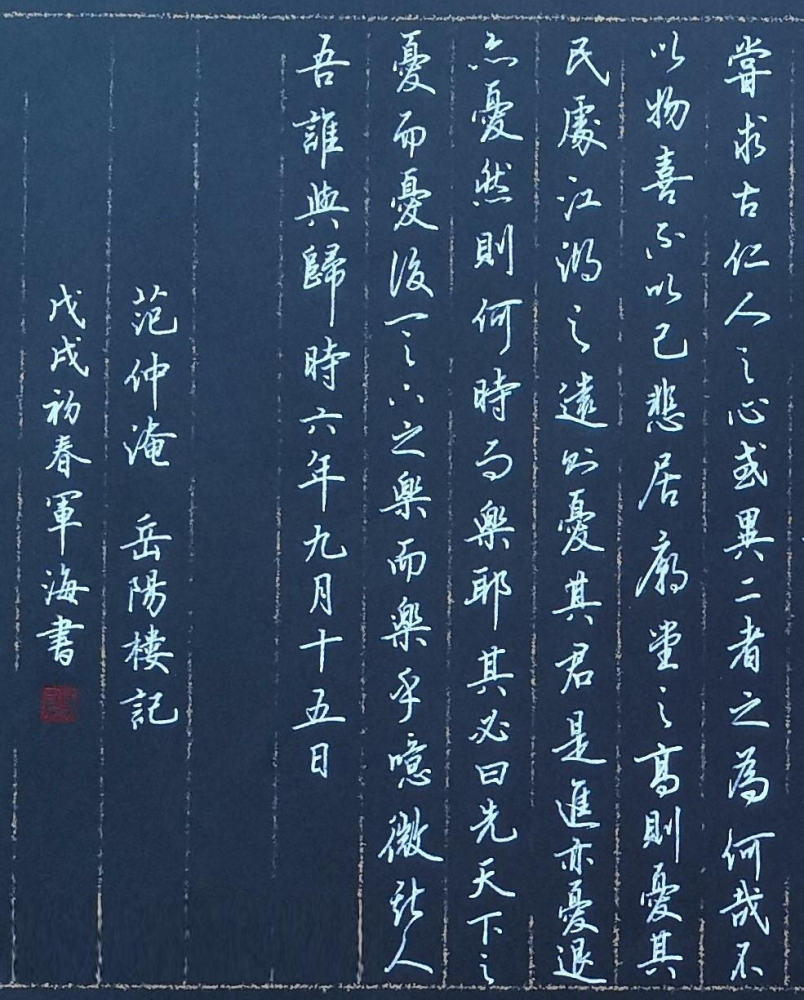 嘗求古仁人之心或異二者之為何哉不
以物喜不以己悲居廟堂之高則憂其
民處江湖之遠則憂其君是進亦憂退
亦憂然則何時而樂耶其必曰先天下之
憂而憂後天下之樂而樂乎噫微斯人
吾誰與歸時六年九月十五日
范仲淹 岳陽樓記
戊戌初春軍海書